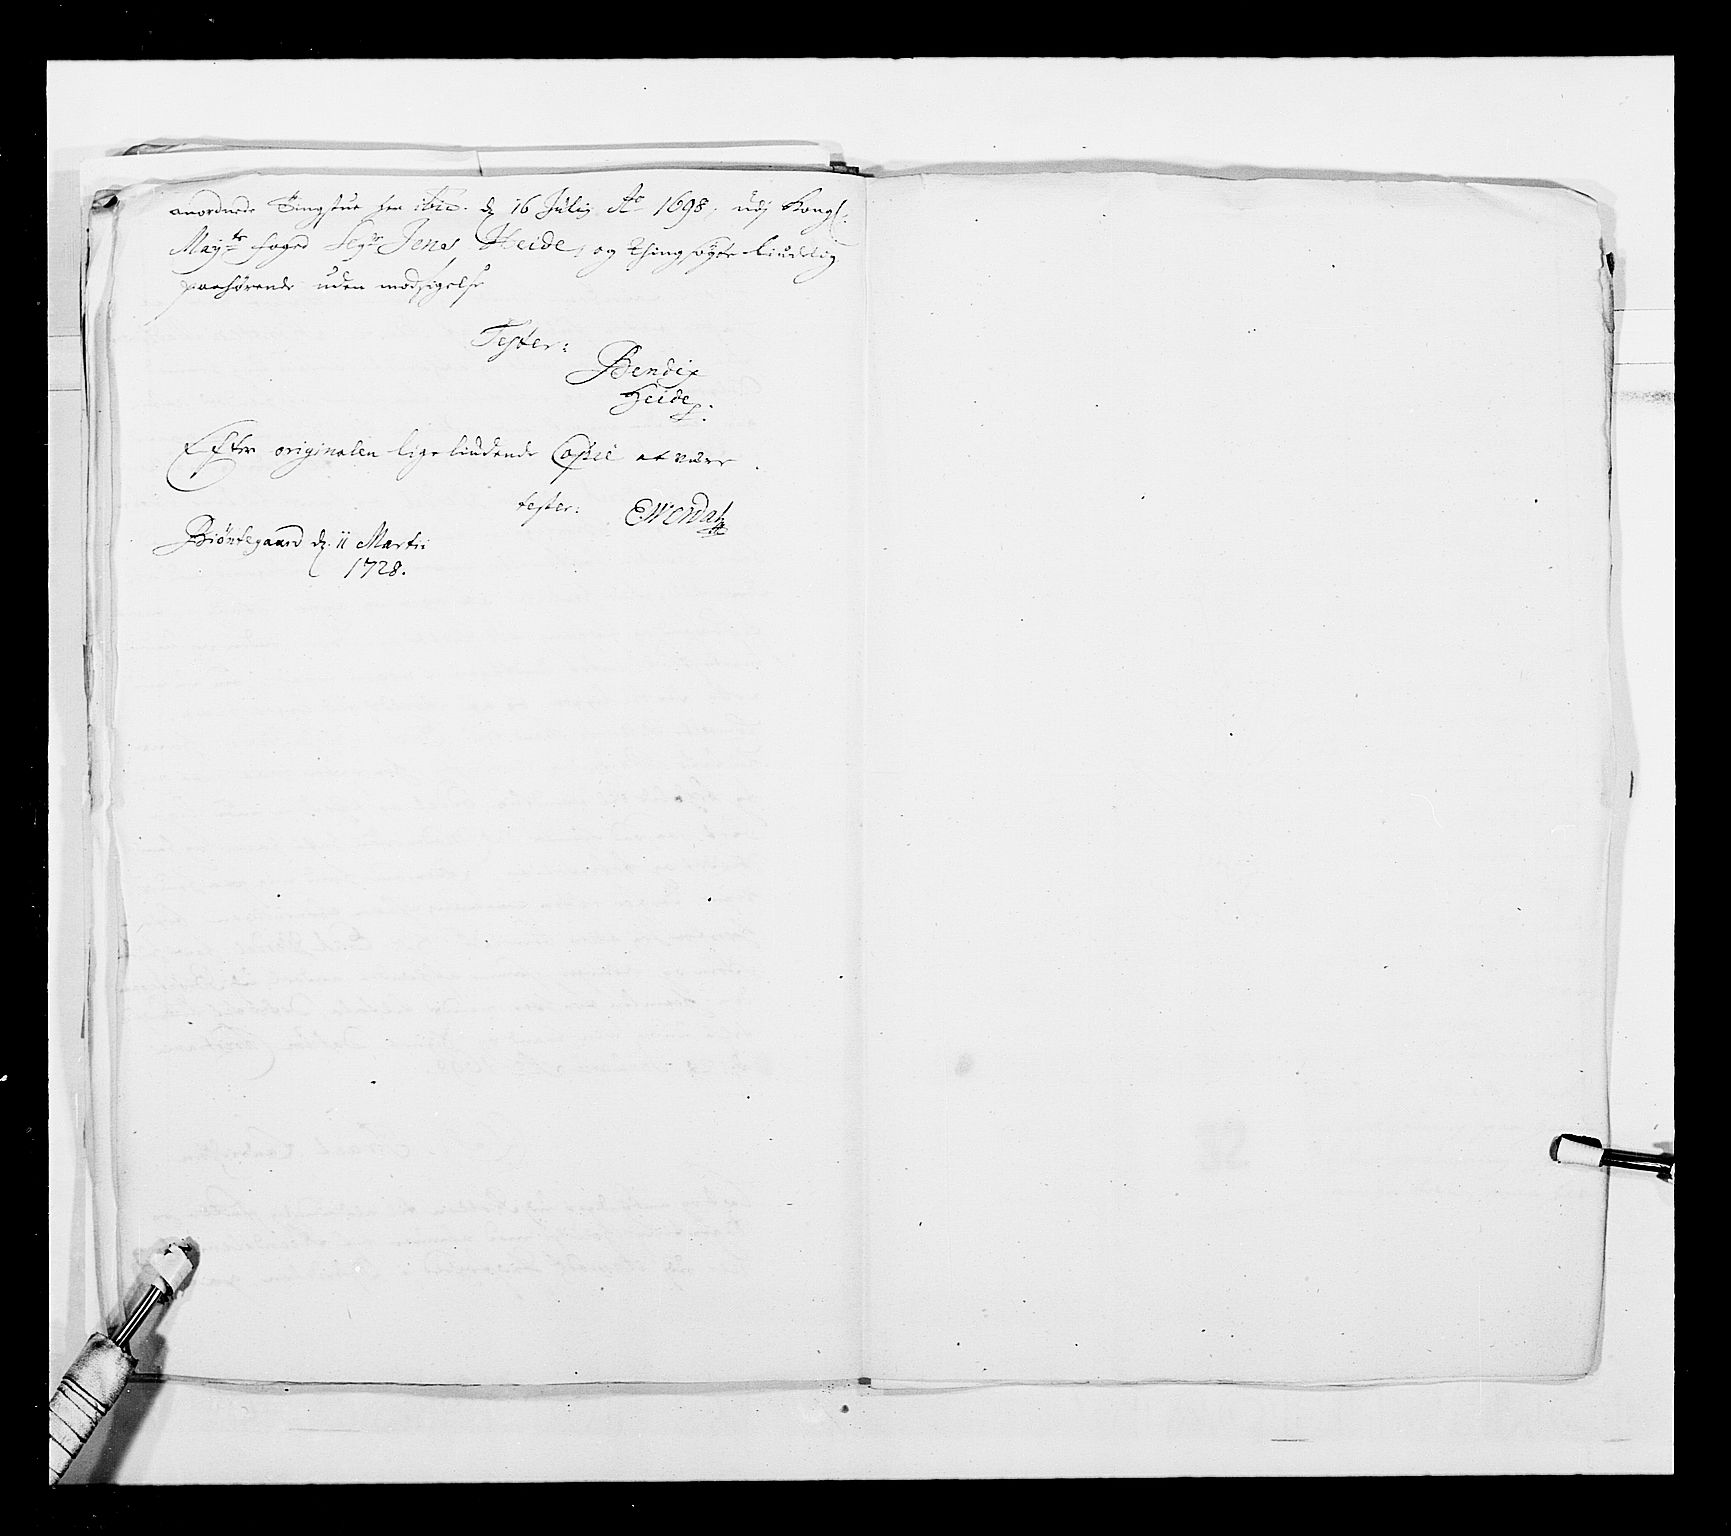 anordnede Tingstue her ibid. d. 16 Julij Ao 1698, udj Kongl.
Mayts foged Segr Jens Heide, og Thingsøgte liudelig
paahørende uden modsigelse
Tester:
Bendix
Heide
Efter originalen lige liudende Copie at være
tester: EWerdal
Biöntegaard d. 11 Martii
1728.